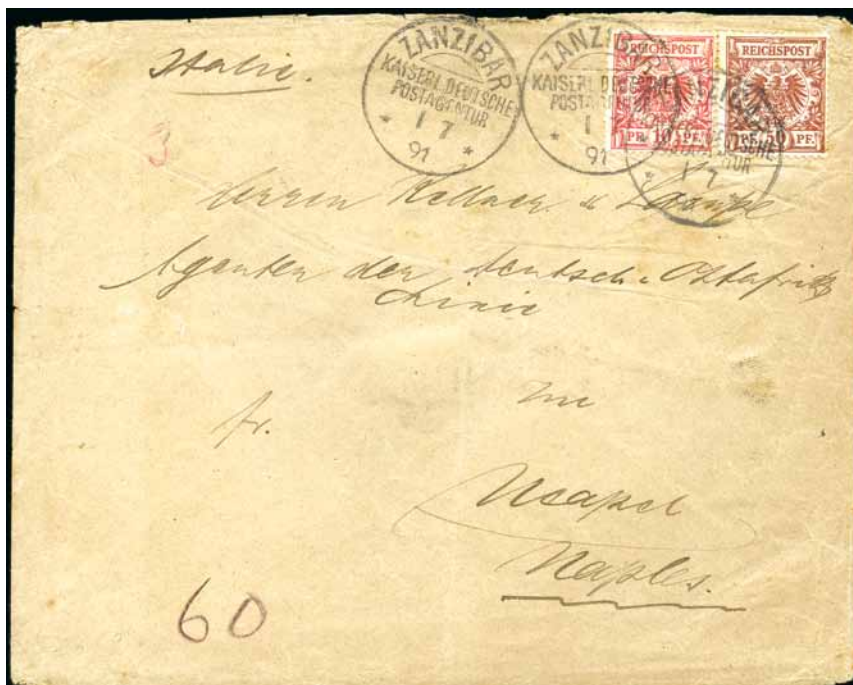 Italie.
ZANZIBAR
KAISERL. DEUTSCHE
POSTAGENTUR
* 1 7 *
91
ZANZIBAR
KAISERL. DEUTSCHE
POSTAGENTUR
* 1
91
REICHSPOST
PF. 10 PF.
REICHSPOST
PF. 50 PF.
DEUTSCHE
* 1 7
3
Herren Kellner &
Agenten der Deutsch-Ostafrik
Linie
fr.
in
Neapel
Naples.
60